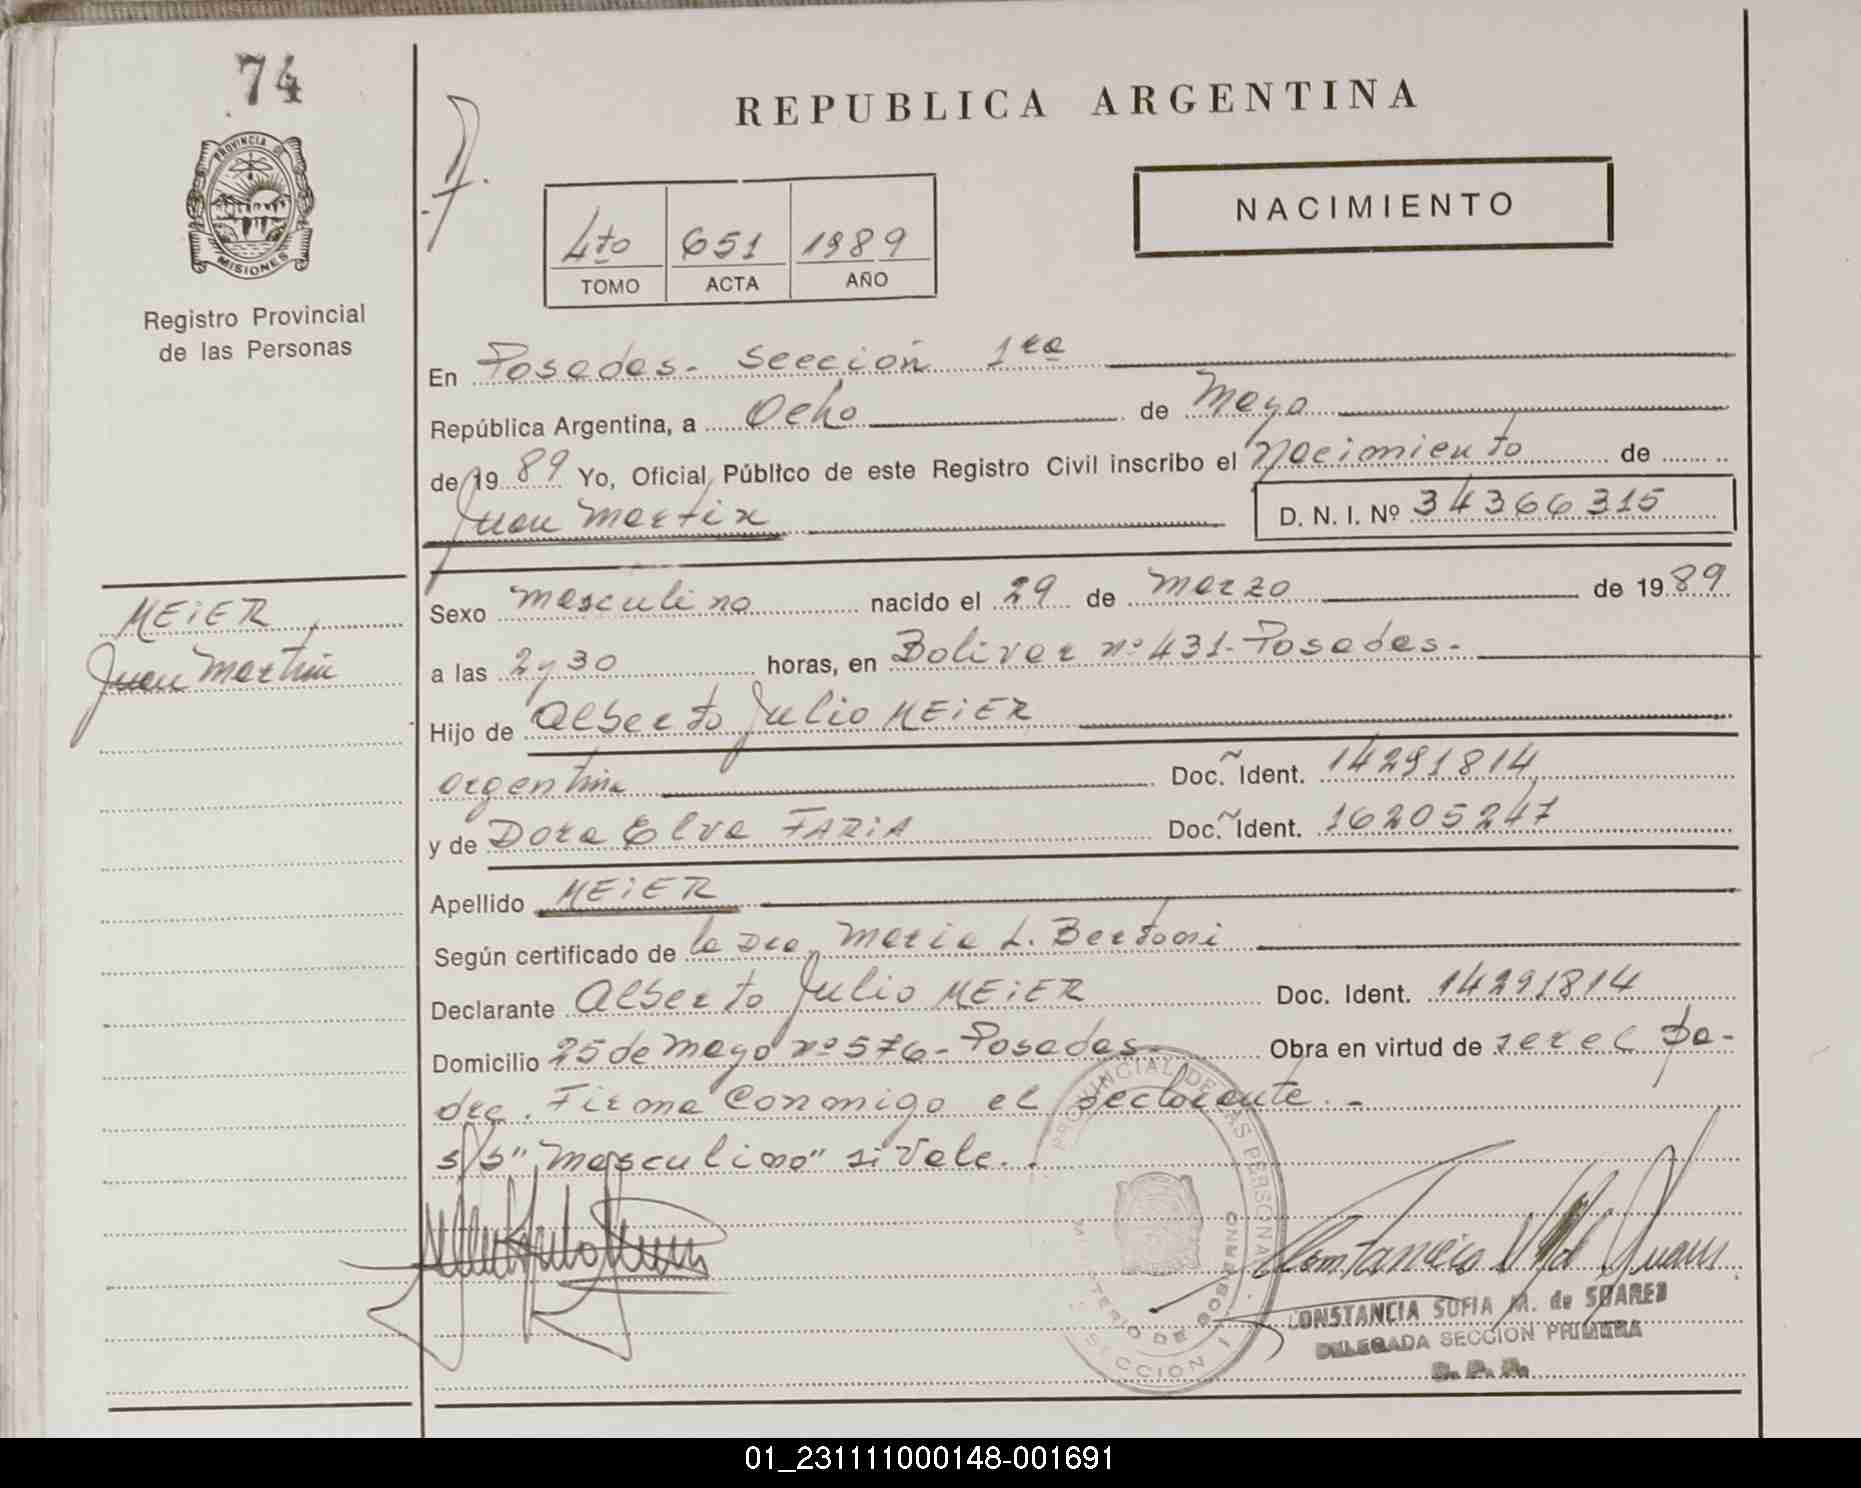 74
REPUBLICA ARGENTINA
PROVINCIA DE
MISIONES
Registro Provincial
de las Personas
4to 651 1989
TOMO ACTA AÑO
NACIMIENTO
En Posadas - Sección 1ra
República Argentina, a Ocho de Mayo
de 1989 Yo, Oficial Público de este Registro Civil inscribo el Nacimiento de
Juan Martin D. N. I. Nº 34366315
MEiER
Juan Martin
Sexo masculino nacido el 29 de marzo de 1989
a las 2 y 30 horas, en Bolivar nº 431 - Posadas -
Hijo de Alberto Julio MEiER
argentina Doc. Ident. 14291814
y de Dora Elva FARiA Doc. Ident. 16205247
Apellido MEiER
Según certificado de la Dra. Maria L. Bertoni
Declarante Alberto Julio MEiER Doc. Ident. 14291814
Domicilio 25 de Mayo nº 576 - Posadas - Obra en virtud de ser el pa-
dre. Firma Conmigo el declarante. -
s/b "masculino" si Vale. -
PROVINCIAL DE LAS PERSONAS
MINISTERIO DE GOBIERNO
SECCION 1
CONSTANCIA SOFIA M. de SUAREZ
DELEGADA SECCION PRIMERA
01_231111000148-001691